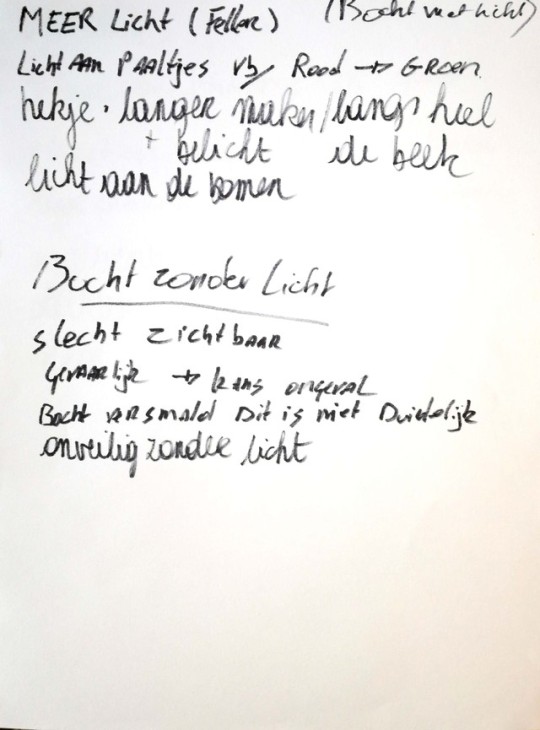 MEER Licht (Feller) (Bocht met licht)
Licht AAN PAAltjes vb/ Rood → GROEN
hekje · langer maken/langs heel
+ belicht de beek
licht aan de bomen
Bocht zonder Licht
slecht zichtbaar
Gevaarlijk → kans ongeval
Bocht versmald Dit is niet Duidelijk
onveilig zonder licht